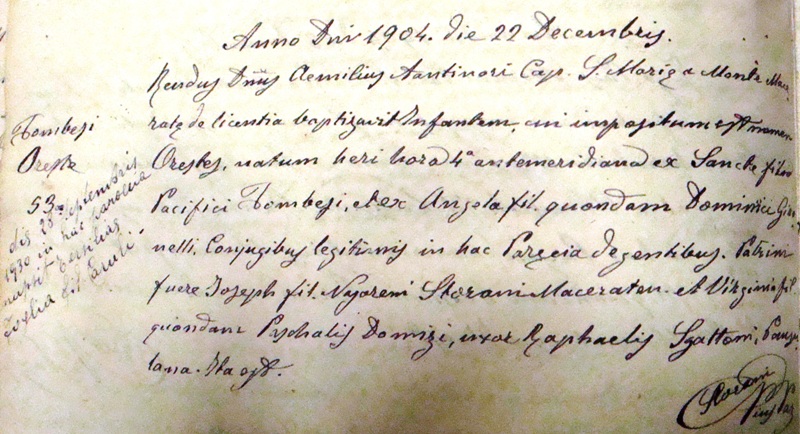 Anno Dni 1904. die 22 Decembris.
Rendus Dnus Aemilius Antinori Cap. S. Mariæ a Monte Mace-
ratæ de licentia baptizavit Infantem, cui impositum est nomen
Orestes, natum heri hora 4ª antemeridiana ex Sancte filio
Pacifici Tombesi, et ex Angela fil. quondam Dominici Gio-
nelli, Conjugibus legitimis in hac Parœcia degentibus. Patrini
fuere Joseph fil. Storani Maceraten. et Virginia fil.
quondam Pschalis Domizi, uxor Raphaelis
lana. Ita est.
Tombesi
Oreste
53
die 28 Septembris
1930 in hac parœcia
nupsit
fil.